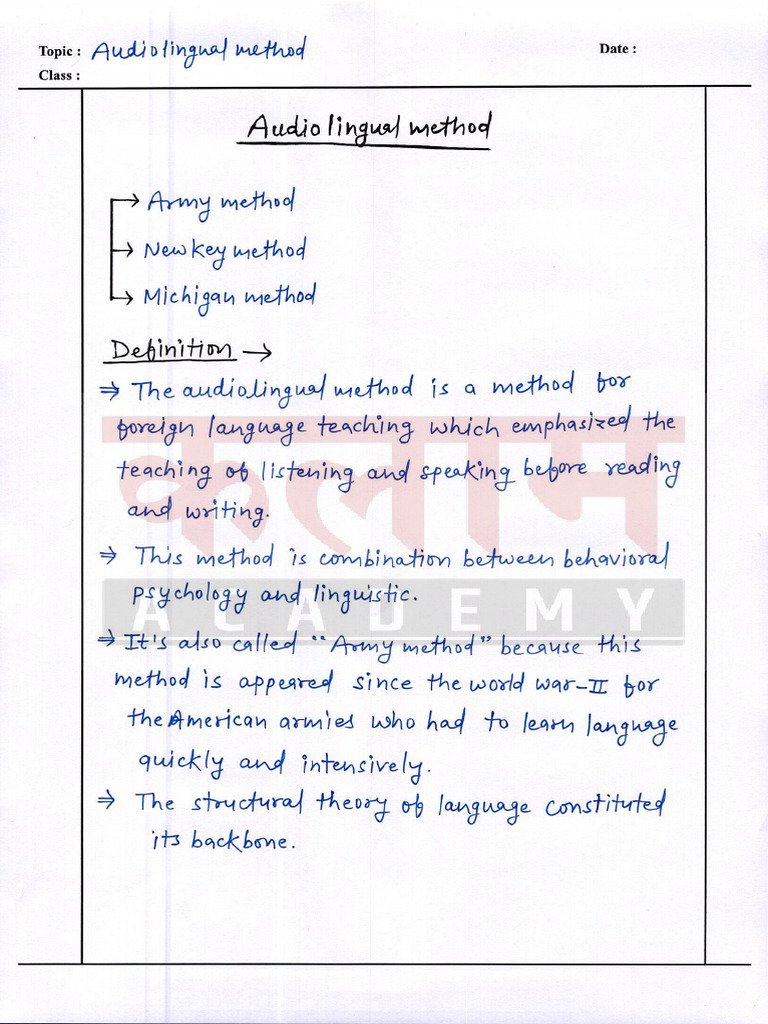 Topic : Audiolingual method
Date :
Class :
Audiolingual method
→ Army method
→ New key method
→ Michigan method
Definition →
⇒ The audiolingual method is a method for
foreign language teaching which emphasized the
teaching of listening and speaking before reading
and writing.
⇒ This method is combination between behavioral
psychology and linguistic.
⇒ It's also called "Army method" because this
method is appeared since the world war-II for
the American armies who had to learn language
quickly and intensively.
⇒ The structural theory of language constituted
its backbone.
कलाम
ACADEMY